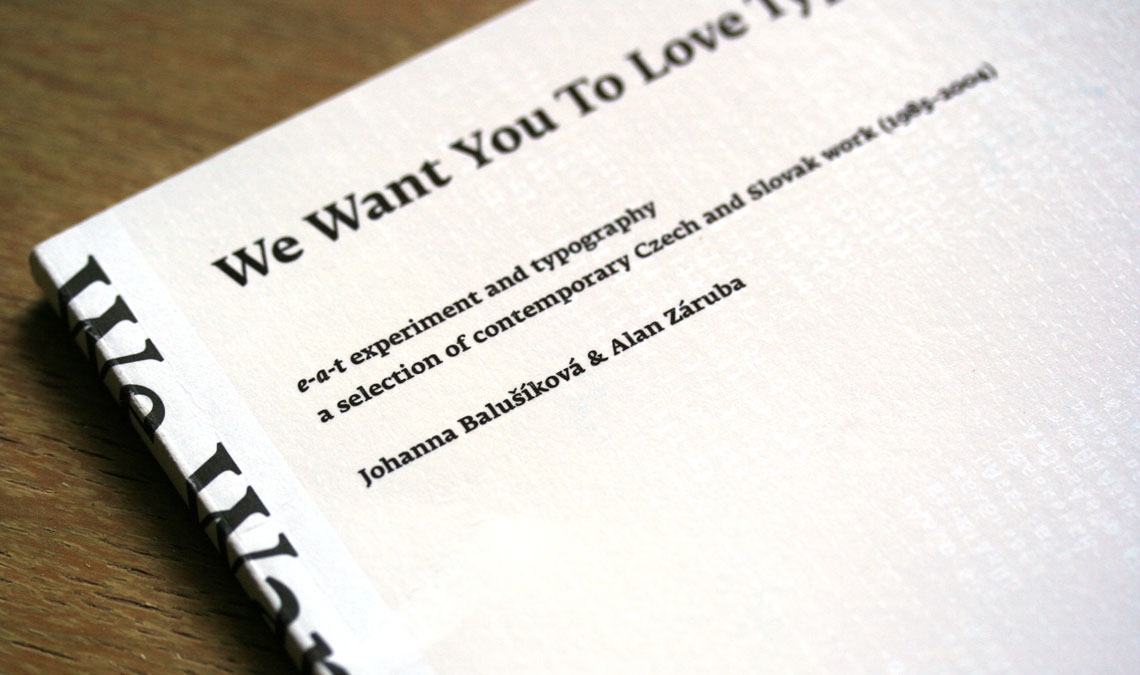 We Want You To Love Ty
e-a-t experiment and typography
a selection of contemporary Czech and Slovak work (1985-2004)
Johanna Balušíková & Alan Záruba
We Wa